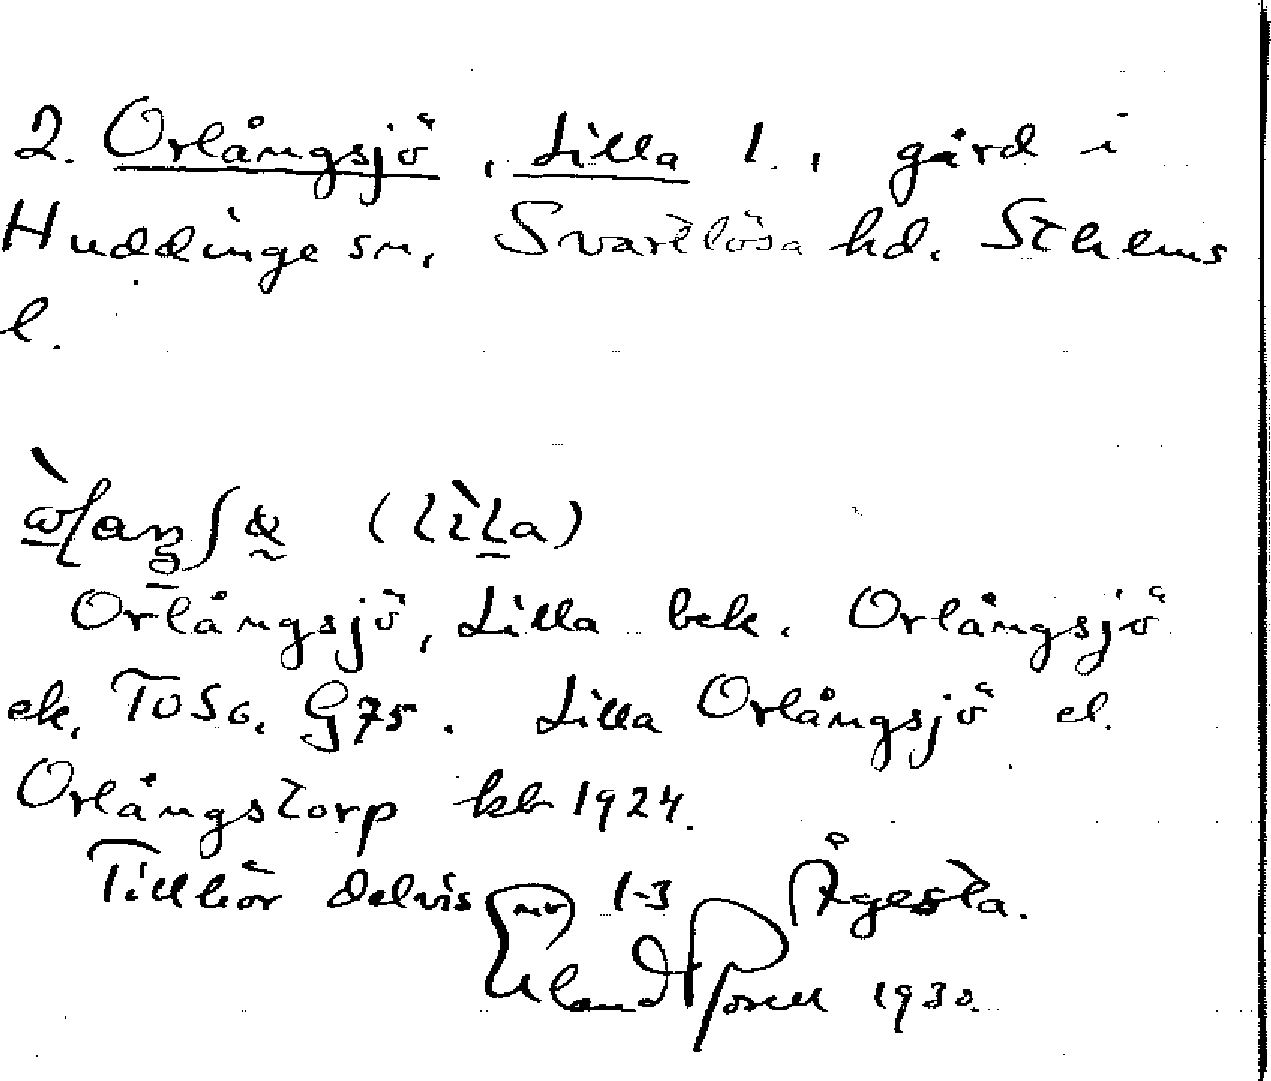 2. Orlångsjö, Lilla 1., gård i
Huddinge sn, Svartlösa hd. Sthlms
l.
(lìla)
Orlångsjö, Lilla bek. Orlångsjö
ek. G75. Lilla Orlångsjö el.
Orlångstorp kb 1924.
Tillhör delvis nr 1-3 Ågesta.
Erland Rosell 1930.